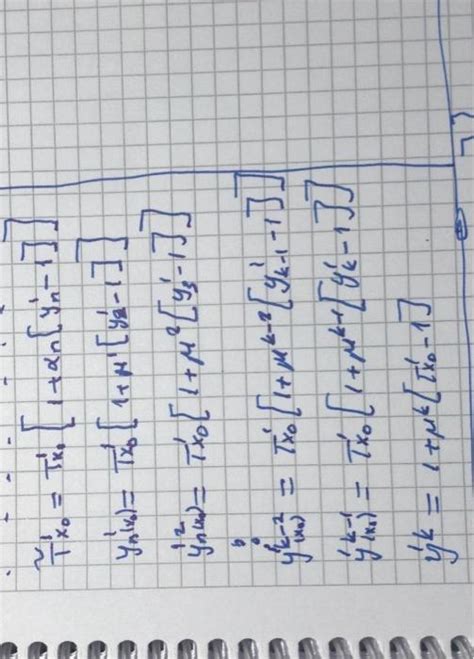 T̃'x₀ = T'x₀ [1 + αn [y'n − 1]]
y'n(x₀) = T'x₀ [1 + μ' [y'2 − 1]]
y'²n(x₀) = T'x₀ [1 + μ² [y'3 − 1]]
y'k−2(x₀) = T'x₀ [1 + μk−2 [y'k−1 − 1]]
y'k−1(x₀) = T'x₀ [1 + μk−1 [y'k − 1]]
y'k = 1 + μk [T'x₀ − 1]